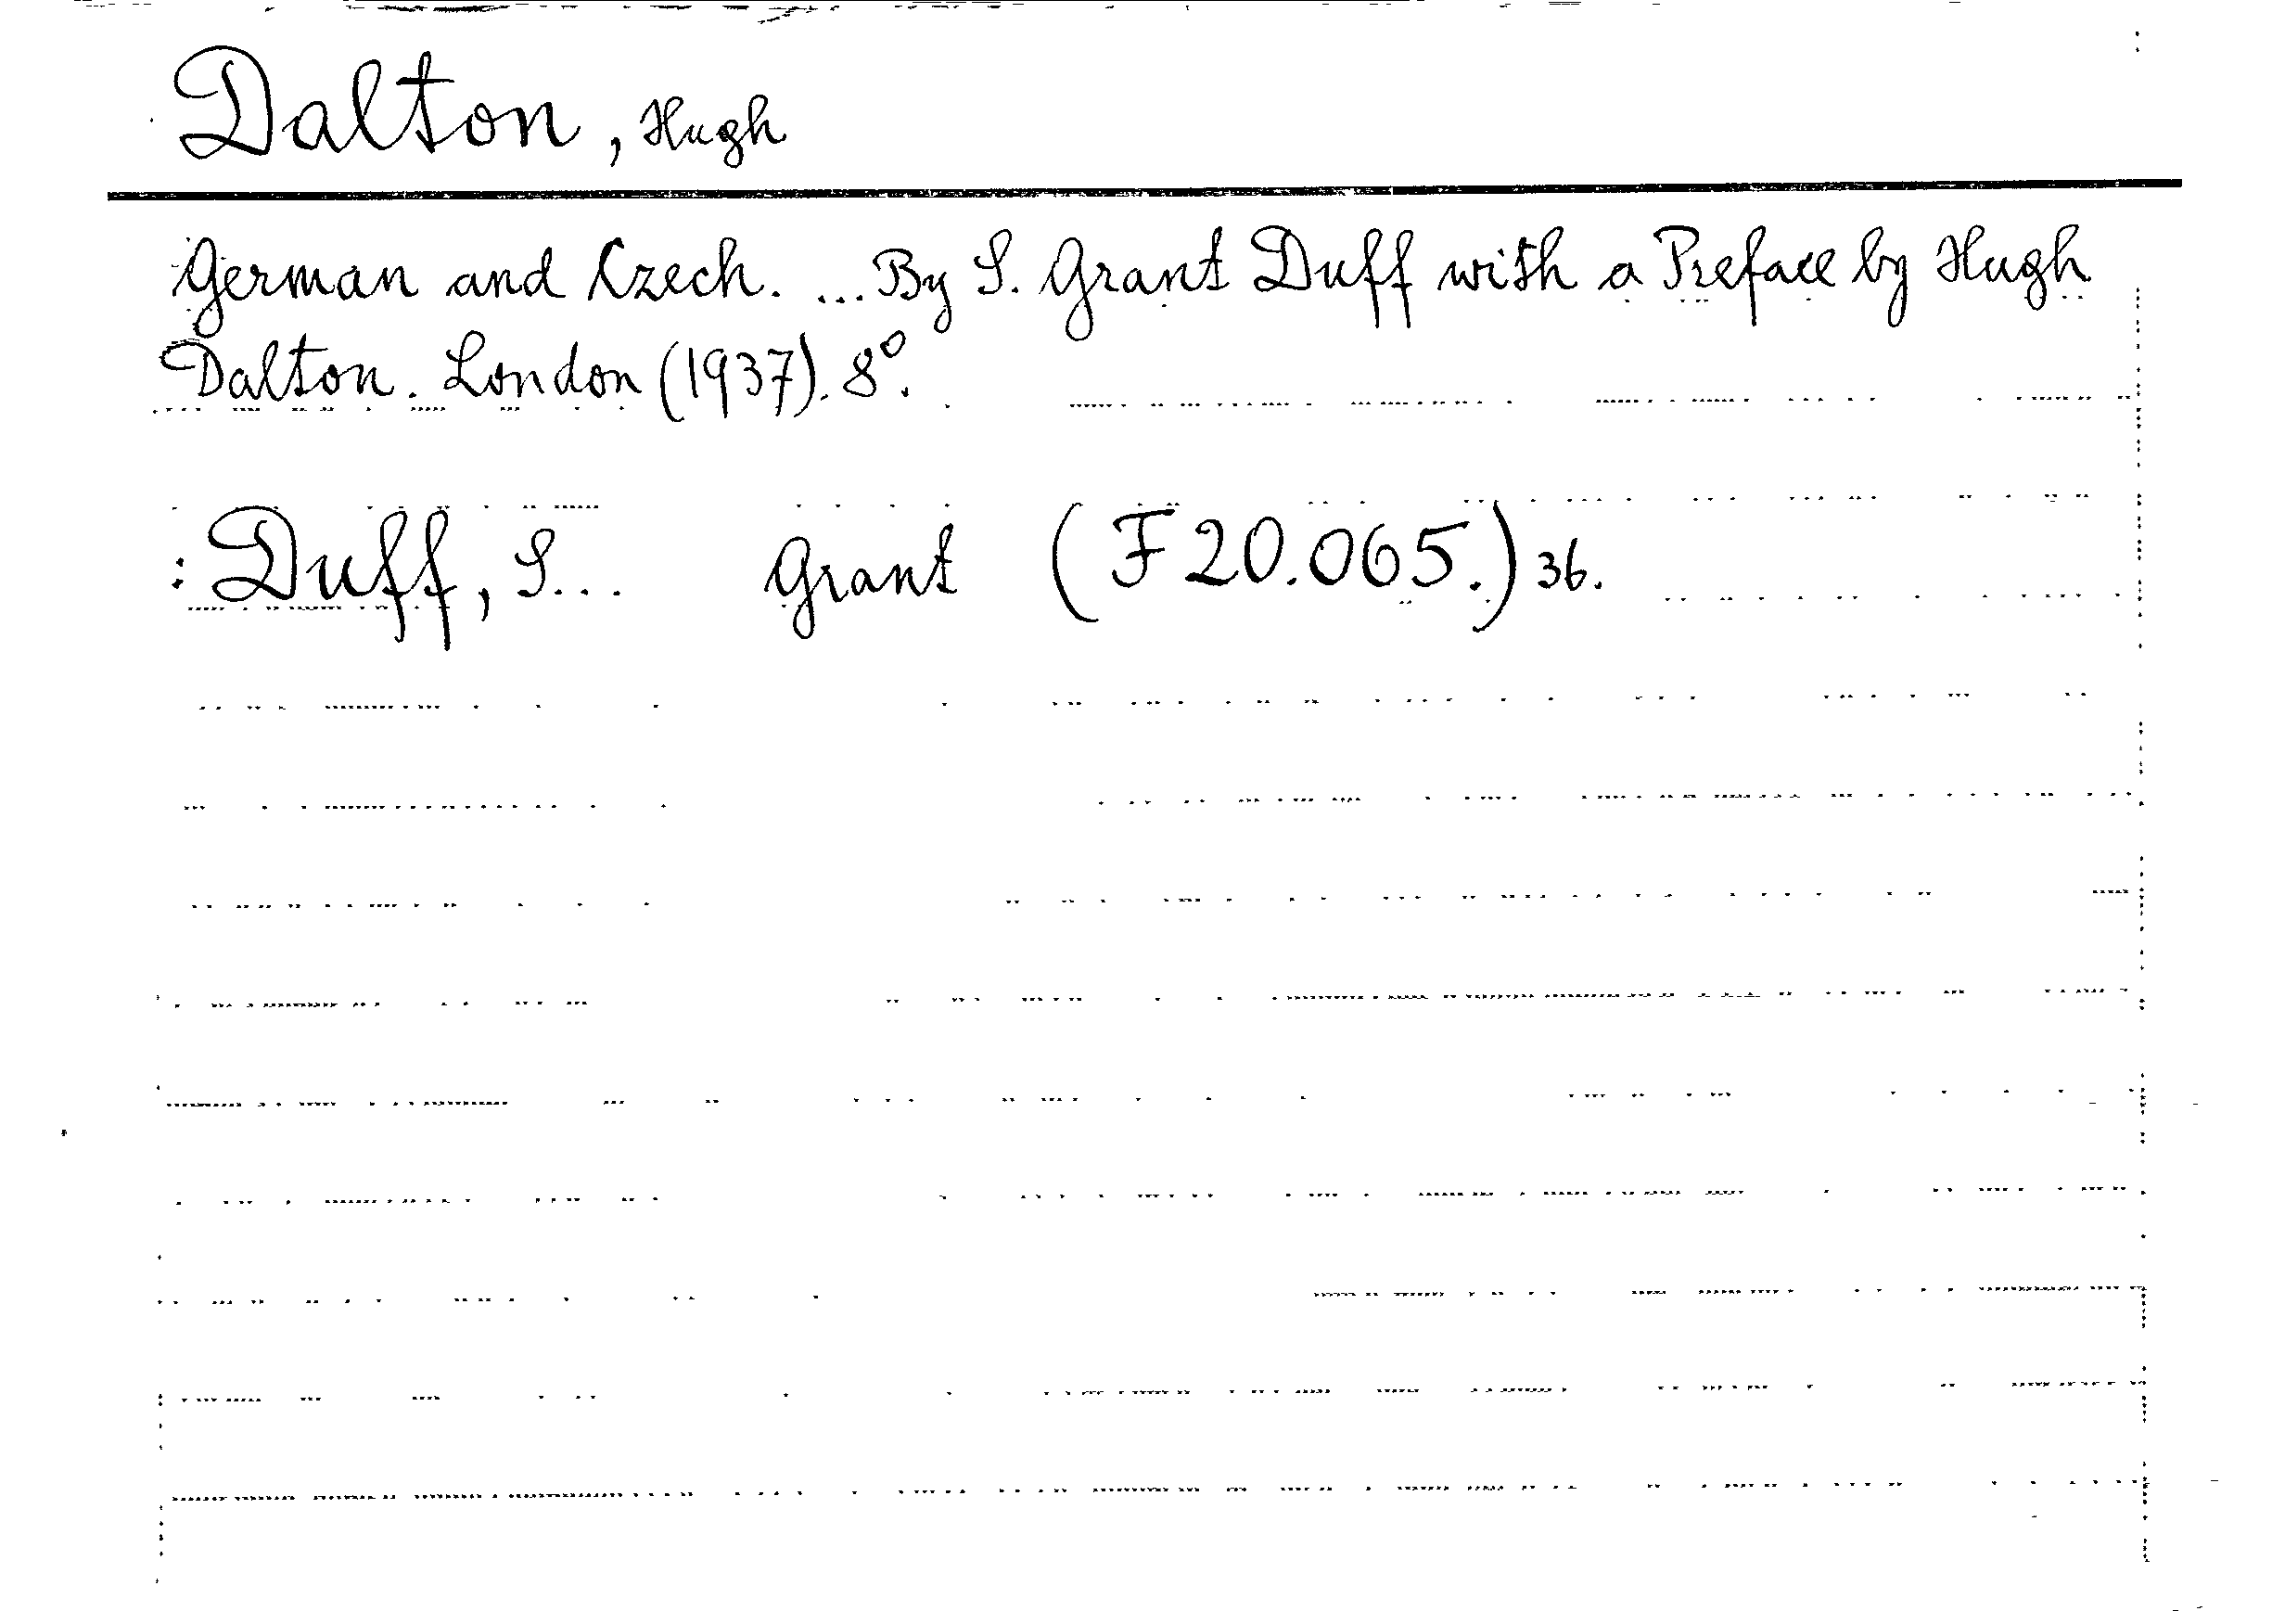 Dalton, Hugh
German and Czech. ... By S. Grant Duff with a Preface by Hugh
Dalton. London (1937). 8°.
: Duff, S... Grant (F 20.065.) 36.